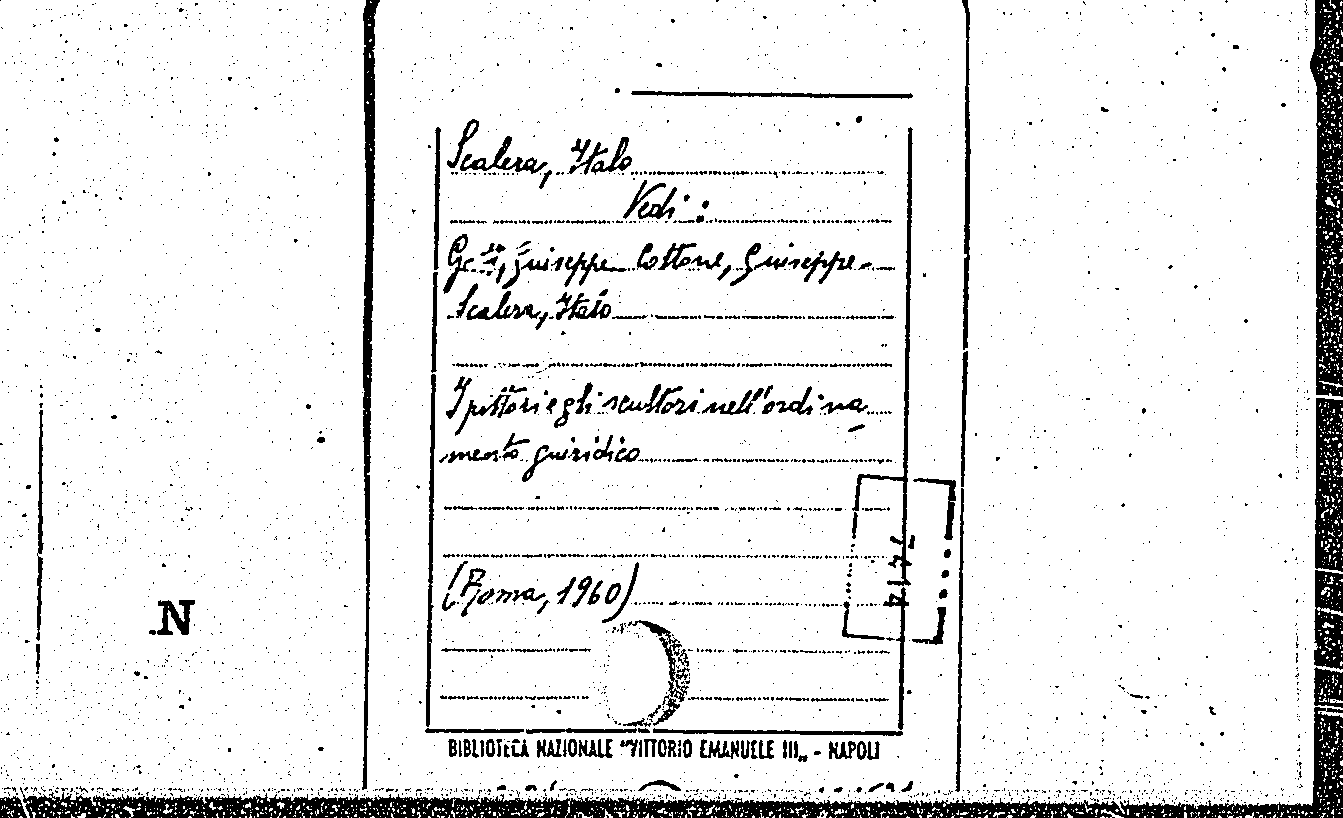 Scalera, Italo
Vedi:
Giuseppe Cottone, Giuseppe-
Scalera, Italo
I pittori e gli scultori nell'ordina
mento giuridico
(Roma, 1960)
N
BIBLIOTECA NAZIONALE "VITTORIO EMANUELE III„ - NAPOLI